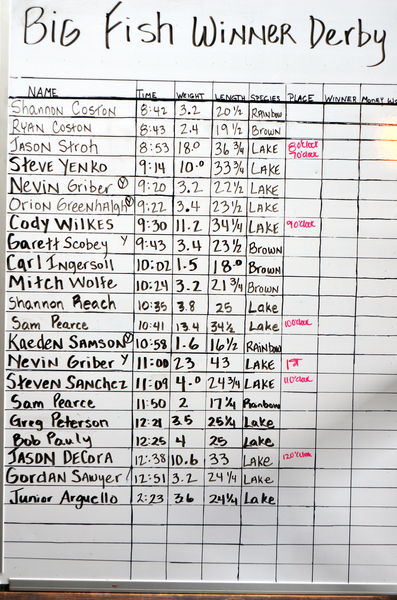 Big Fish Winner Derby
NAME TIME WEIGHT LENGTH SPECIES PLACE WINNER MONEY
Shannon Coston 8:42 3.2 20½ Rainbow
Ryan Coston 8:43 2.4 19½ Brown
Jason Stroh 8:53 18.0 36¾ Lake 8 o'clock
Steve Yenko 9:14 10.0 33¾ Lake
Nevin Griber Y 9:20 3.2 22½ Lake
Orion Greenhalgh Y 9:22 3.4 23½ Lake
Cody Wilkes 9:30 11.2 34¼ Lake 9 o'clock
Garett Scobey Y 9:43 3.4 23½ Brown
Carl Ingersoll 10:02 1.5 18.0 Brown
Mitch Wolfe 10:24 3.2 21¾ Brown
Shannon Reach 10:35 3.8 25 Lake
Sam Pearce 10:41 13.4 34½ Lake 10 o'clock
Kaeden Samson Y 10:58 1.6 16½ Rainbow
Nevin Griber Y 11:00 23 43 Lake 1st
Steven Sanchez 11:09 4.0 24¾ Lake 11 o'clock
Sam Pearce 11:50 2 17¼ Rainbow
Greg Peterson 12:21 3.5 25¼ Lake
Bob Pauly 12:25 4 25 Lake
Jason DeCora 12:38 10.6 33 Lake 12 o'clock
Gordan Sawyer 12:51 3.2 24¼ Lake
Junior Arguello 2:23 3.6 24¼ Lake